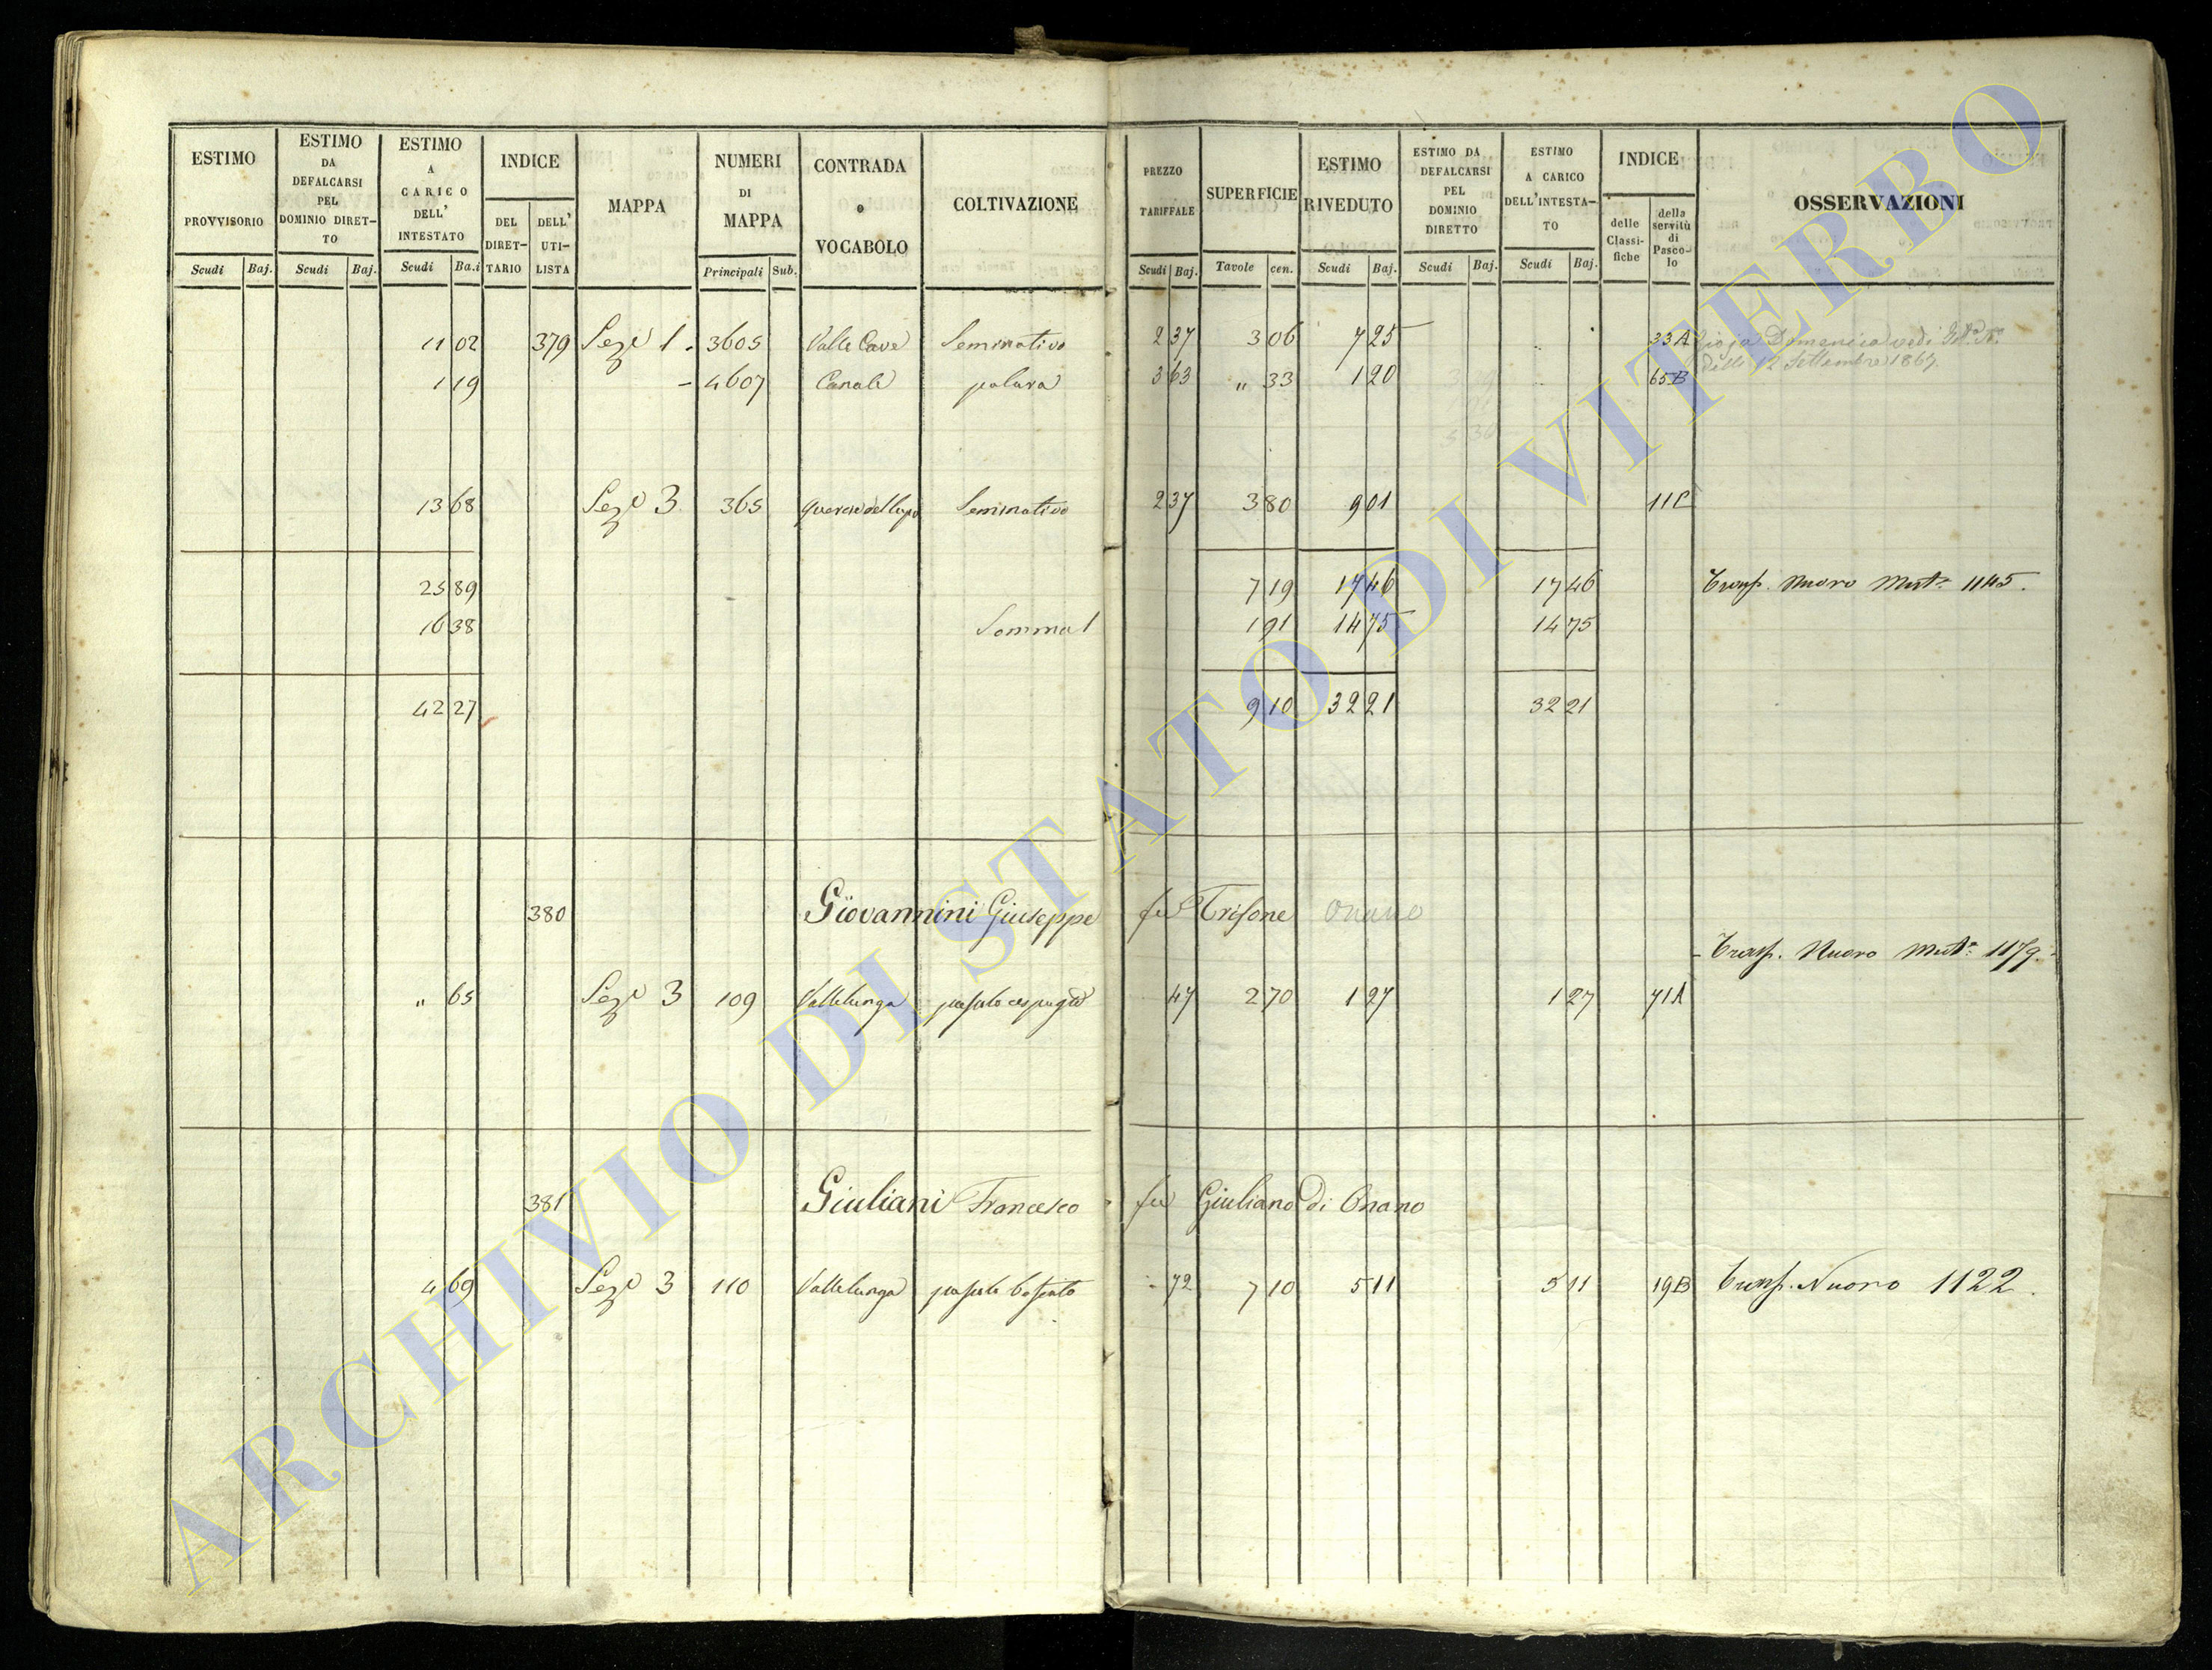 ESTIMO PROVVISORIO
Scudi Baj.
ESTIMO DA DEFALCARSI PEL DOMINIO DIRET-TO
Scudi Baj.
ESTIMO A CARICO DELL' INTESTATO
Scudi Ba.i
INDICE
DEL DIRET-TARIO
DELL' UTI-LISTA
MAPPA
NUMERI DI MAPPA
Principali Sub.
CONTRADA o VOCABOLO
COLTIVAZIONE
PREZZO TARIFFALE
Scudi Baj.
SUPERFICIE
Tavole cen.
ESTIMO RIVEDUTO
Scudi Baj.
ESTIMO DA DEFALCARSI PEL DOMINIO DIRETTO
Scudi Baj.
ESTIMO A CARICO DELL'INTESTA-TO
Scudi Baj.
INDICE
delle Classi-fiche
della servitù di Pasco-lo
OSSERVAZIONI
11 02 379 Seze 1 - 3605 Valle Cave Seminativo 2 37 3 06 7 25 33A Domenica vedi
12 Settembre 1867.
1 19 - 4607 Canale 3 63 " 33 1 20 65B
13 68 Seze 3 365 Querce del lupo Seminativo 2 37 3 80 9 01 11C
25 89 7 19 17 46 17 46 Trasp. Nuovo Mut.e 1145.
16 38 Somma 1 91 14 75 14 75
42 27 9 10 32 21 32 21
380 Giovannini Giuseppe fu Trifone Onano
Trasp. Nuovo Mut.e 1179.
" 65 Seze 3 109 Vallelunga pascolo cespugto 47 2 70 1 27 1 27 71A
381 Giuliani Francesco fu Giuliano di Onano
4 69 Seze 3 110 Vallelunga pascolo boscato 72 7 10 5 11 5 11 19B Trasp. Nuovo 1122.
ARCHIVIO DI STATO DI VITERBO